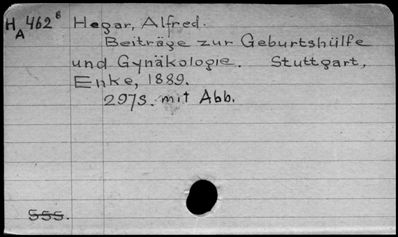 H 462⁸ Hegar, Alfred.
A Beiträge zur Geburtshülfe
und Gynäkologie. Stuttgart,
Enke, 1889.
297S. mit Abb.
555.